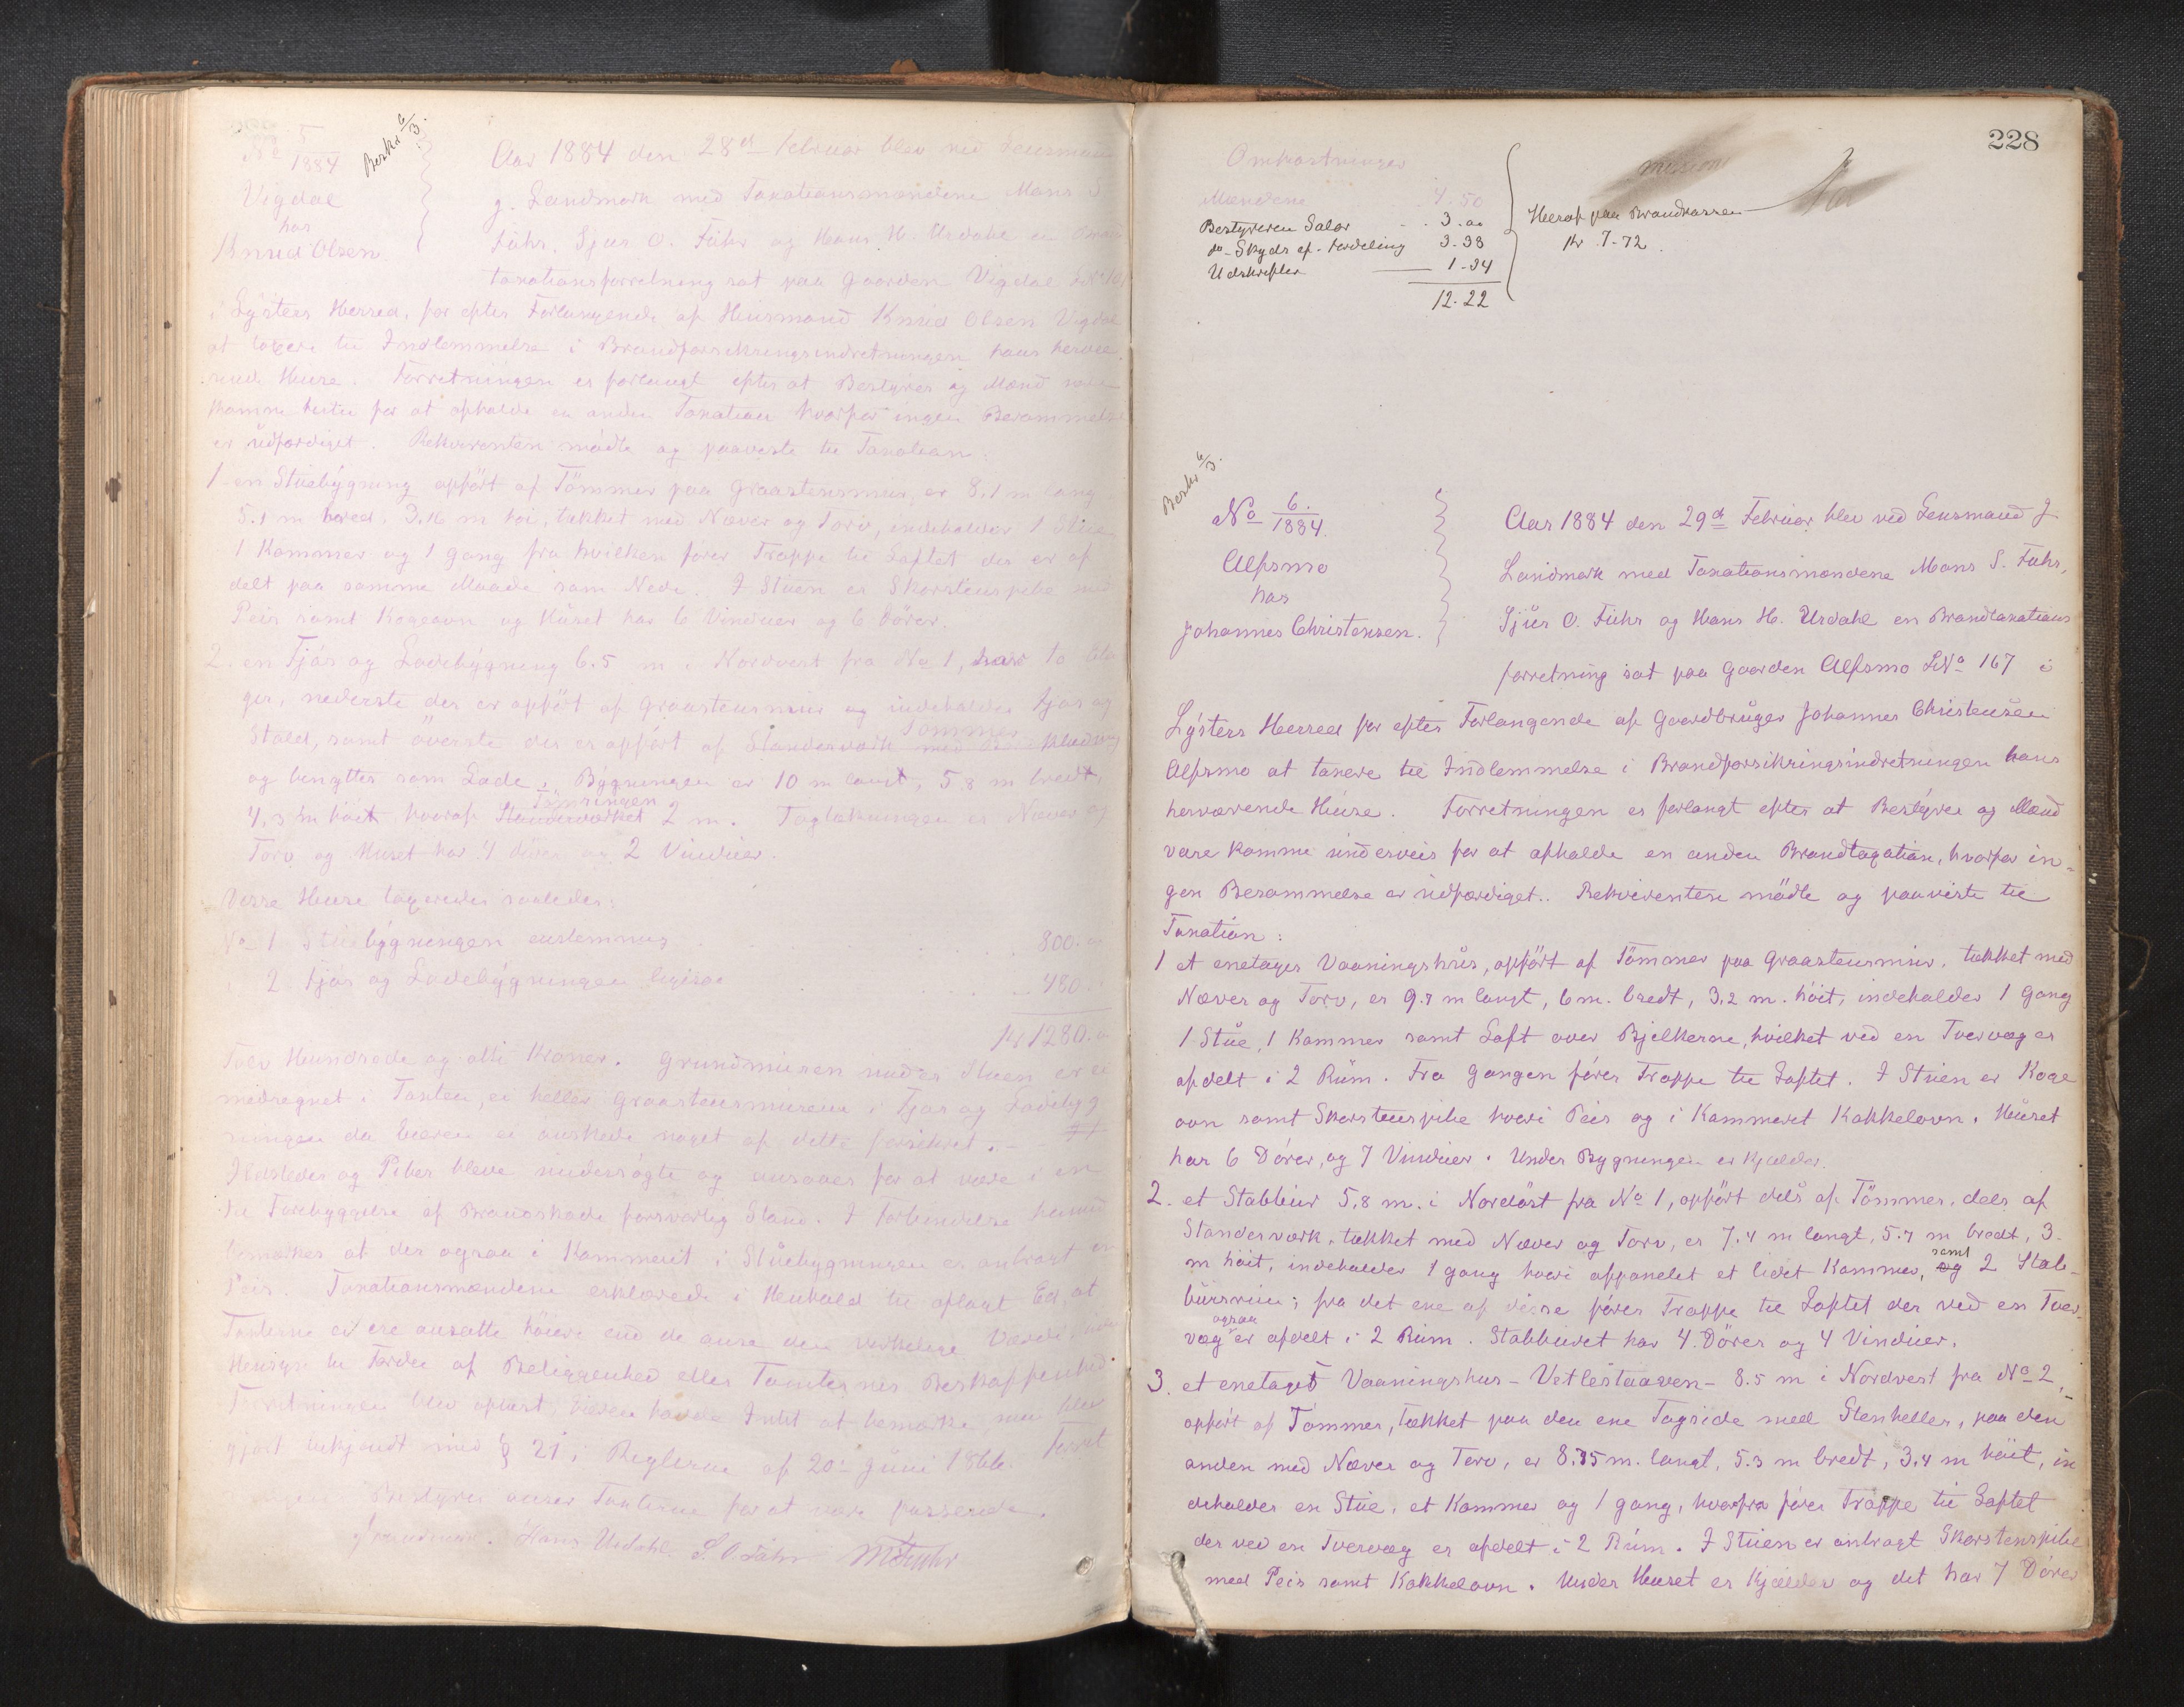 No 5/1884
Beskr 6/3.
Vigdal
hos
Knud Olsen
Aar 1884 den 28de Februar blev ved Lensmand
J. Landmark med Taxationsmændene Mons S.
Fuhr, Sjur O. Fuhr og Hans H. Urdahl en Brand
taxationsforretning sat paa Gaarden Vigdal LNo
i Lysters Herred, for efter Forlangende af Husmand Knud Olsen Vigdal
at taxere til Indlemmelse i Brandforsikringsindretningen hans hervæ
rende Huse. Forretningen er forlangt efter at Bestyrer og Mænd vare
komne hertil for at afholde en anden Taxation hvorfor ingen Berammelse
er udfærdiget. Rekvirenten mödte og paaviste til Taxation:
1 en Stuebygning opfört af Tömmer paa Graastensmur, er 8,1 m lang
5.1 m bred, 3,16 m höi, tækket med Næver og Torv, indeholder 1 Stue,
1 Kammer og 1 Gang fra hvilken förer Trappe til Loftet der er af
delt paa samme Maade som Nede. I Stuen er Skorstenspibe med
Peis samt Kogeovn og Huset har 6 Vinduer og 6 Dörer.
2. en Fjös og Ladebygning 6.5 m i Nordvest fra No 1, har to Eta
ger, nederste der er opfört af Graastensmur og indeholder Fjös og
Stald, samt överste der er opfört af Standerværk med Bordklædning
Tömmer
og benyttes som Lade. Bygningen er 10 m langt, 5.8 m bredt,
4,3 m höit, hvoraf Standerværket 2 m. Tagtækningen er Næver og
Tömringen
Torv og Huset har 4 Dörer og 2 Vinduer.
Disse Huse taxeredes saaledes:
No 1 Stuebygningen enstemmig 800.00
" 2 Fjös og Ladebygningen ligesaa 480. "
Kr 1280.00
Tolv Hundrede og otti Kroner. Grundmuren under Stuen er ei
medregnet i Taxten, ei heller Graastensmuren i Fjös og Ladebyg
ningen da Eieren ei önskede noget af dette forsikret.
Ildsteder og Piber bleve undersögte og ansaaes for at være i en
til Forebyggelse af Brandskade forsvarlig Stand. I Forbindelse hermed
bemærkes at der ogsaa i Kammeret i Stuebygningen er anbragt en
Peis. Taxationsmændene erklærede i Henhold til aflagt Ed, at
Taxterne ei ere ansatte höiere end de anse den virkelige Værdi uden
Hensyn til Fordel af Beliggenhed eller Tomternes Beskaffenhed.
Forretningen blev oplæst, Eieren havde Intet at bemærke, men blev
gjort bekjendt med § 21 i Reglerne af 20de Juni 1866. Forret
Bestyrer anser Taxterne for at være passende.
J Landmark. Hans Urdahl S. O. Fuhr M S Fuhr
228
Omkostninger
Mændene 4.50
Bestyreren Salær 3.00
do Skyds ef. Fordeling 3-38
Udskrifter 1-34
12.22
Heraf paa Brandkassen
Kr 7-72.
Beskr 6/3.
No 6./1884.
Alfsmo
hos
Johannes Christensen.
Aar 1884 den 29de Februar blev ved Lensmand J
Landmark med Taxationsmændene Mons S. Fuhr,
Sjur O. Fuhr og Hans H. Urdahl en Brandtaxations
forretning sat paa Gaarden Alfsmo LNo 167 i
Lysters Herred for efter Forlangende af Gaardbruger Johannes Christensen
Alfsmo at taxere til Indlemmelse i Brandforsikringsindretningen hans
herværende Huse. Forretningen er forlangt efter at Bestyrer og Mænd
vare komne underveis for at afholde en anden Brandtaxation, hvorfor in-
gen Berammelse er udfærdiget.. Rekvirenten mödte og paaviste til
Taxation:
1 et enetages Vaaningshus, opfört af Tömmer paa Graastensmur, tækket med
Næver og Torv, er 9.7 m langt, 6 m. bredt, 3,2 m. höit, indeholder 1 Gang
1 Stue, 1 Kammer samt Loft over Bjelkerne, hvilket ved en Tvervæg er
afdelt i 2 Rum. Fra Gangen förer Trappe til Loftet. I Stuen er Koge
ovn samt Skorstenspibe hvori Peis og i Kammeret Kakkelovn. Huset
har 6 Dörer, og 7 Vinduer. Under Bygningen er Kjelder.
2. et Stabbur 5,8 m. i Nordöst fra No 1, opfört dels af Tömmer, dels af
Standerværk, tækket med Næver og Torv, er 7.4 m langt, 5.7 m bredt, 3.
m höit, indeholder 1 Gang hvori afpanelet et lidet Kammer, og 2 Stab-
samt
bursrum; fra det ene af disse förer Trappe til Loftet der ved en Tver
væg er afdelt i 2 Rum. Stabburet har 4 Dörer og 4 Vinduer.
ogsaa
3. et enetages Vaaningshus - Vetlestuaven - 8.5 m i Nordvest fra No 2,
opfört af Tömmer, tækket paa den ene Tagside med Stenheller, paa den
anden med Næver og Torv, er 8.35 m. langt, 5.3 m bredt, 3,4 m höit, in
deholder en Stue, et Kammer og 1 Gang, hvorfra förer Trappe til Loftet
der ved en Tvervæg er afdelt i 2 Rum. I Stuen er anbragt Skorstenspibe
med Peis samt Kakkelovn. Under Huset er Kjelder og det har 7 Dörer